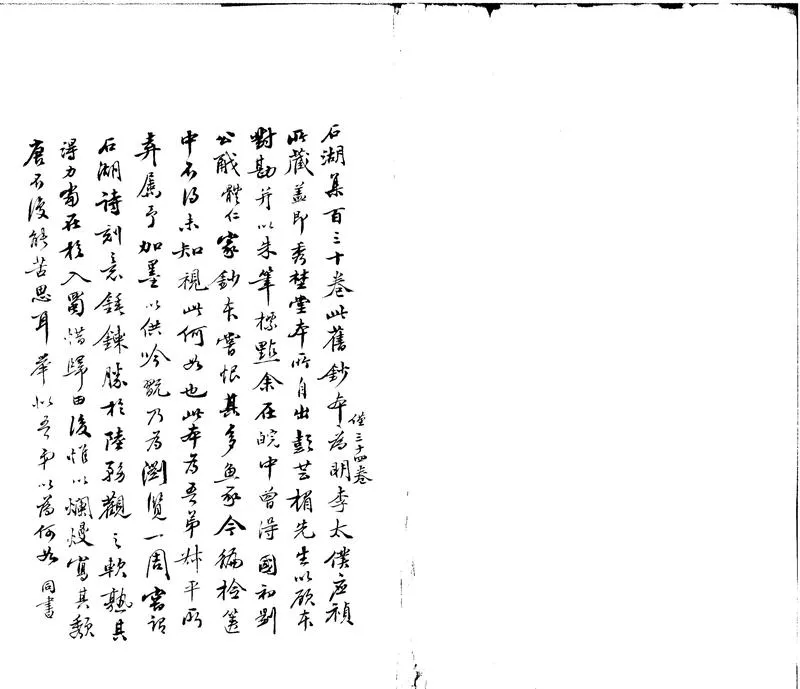 石湖集百三十卷此舊鈔本為明李太僕应禎
僅三十四卷
所藏蓋即秀埜堂本所自出彭芸楣先生以顧本
對勘并以朱筆標點余在皖中曾得國初劉
公㦷體仁家鈔本嘗恨其多魚豕今徧檢篋
中不得未知視此何如也此本為吾弟叔平所
弆屬予加墨以供吟翫乃為瀏覽一周嘗謂
石湖詩刻意錘鍊勝於陸務觀之軟熟其
得力當在於入蜀惜歸田後惟以爛熳寫其頹
唐不復能苦思耳舉似吾弟以為何如 同書